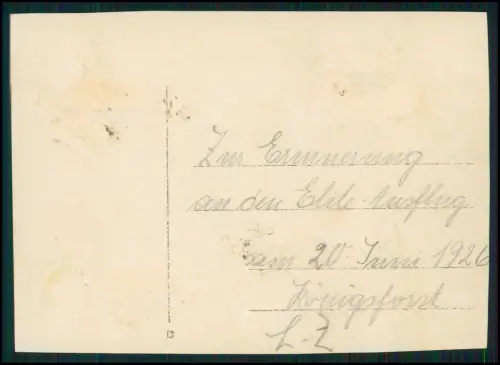 Zur Erinnerung
an den Ausflug
am 20 Juni 1926
Königsforst
L-Z